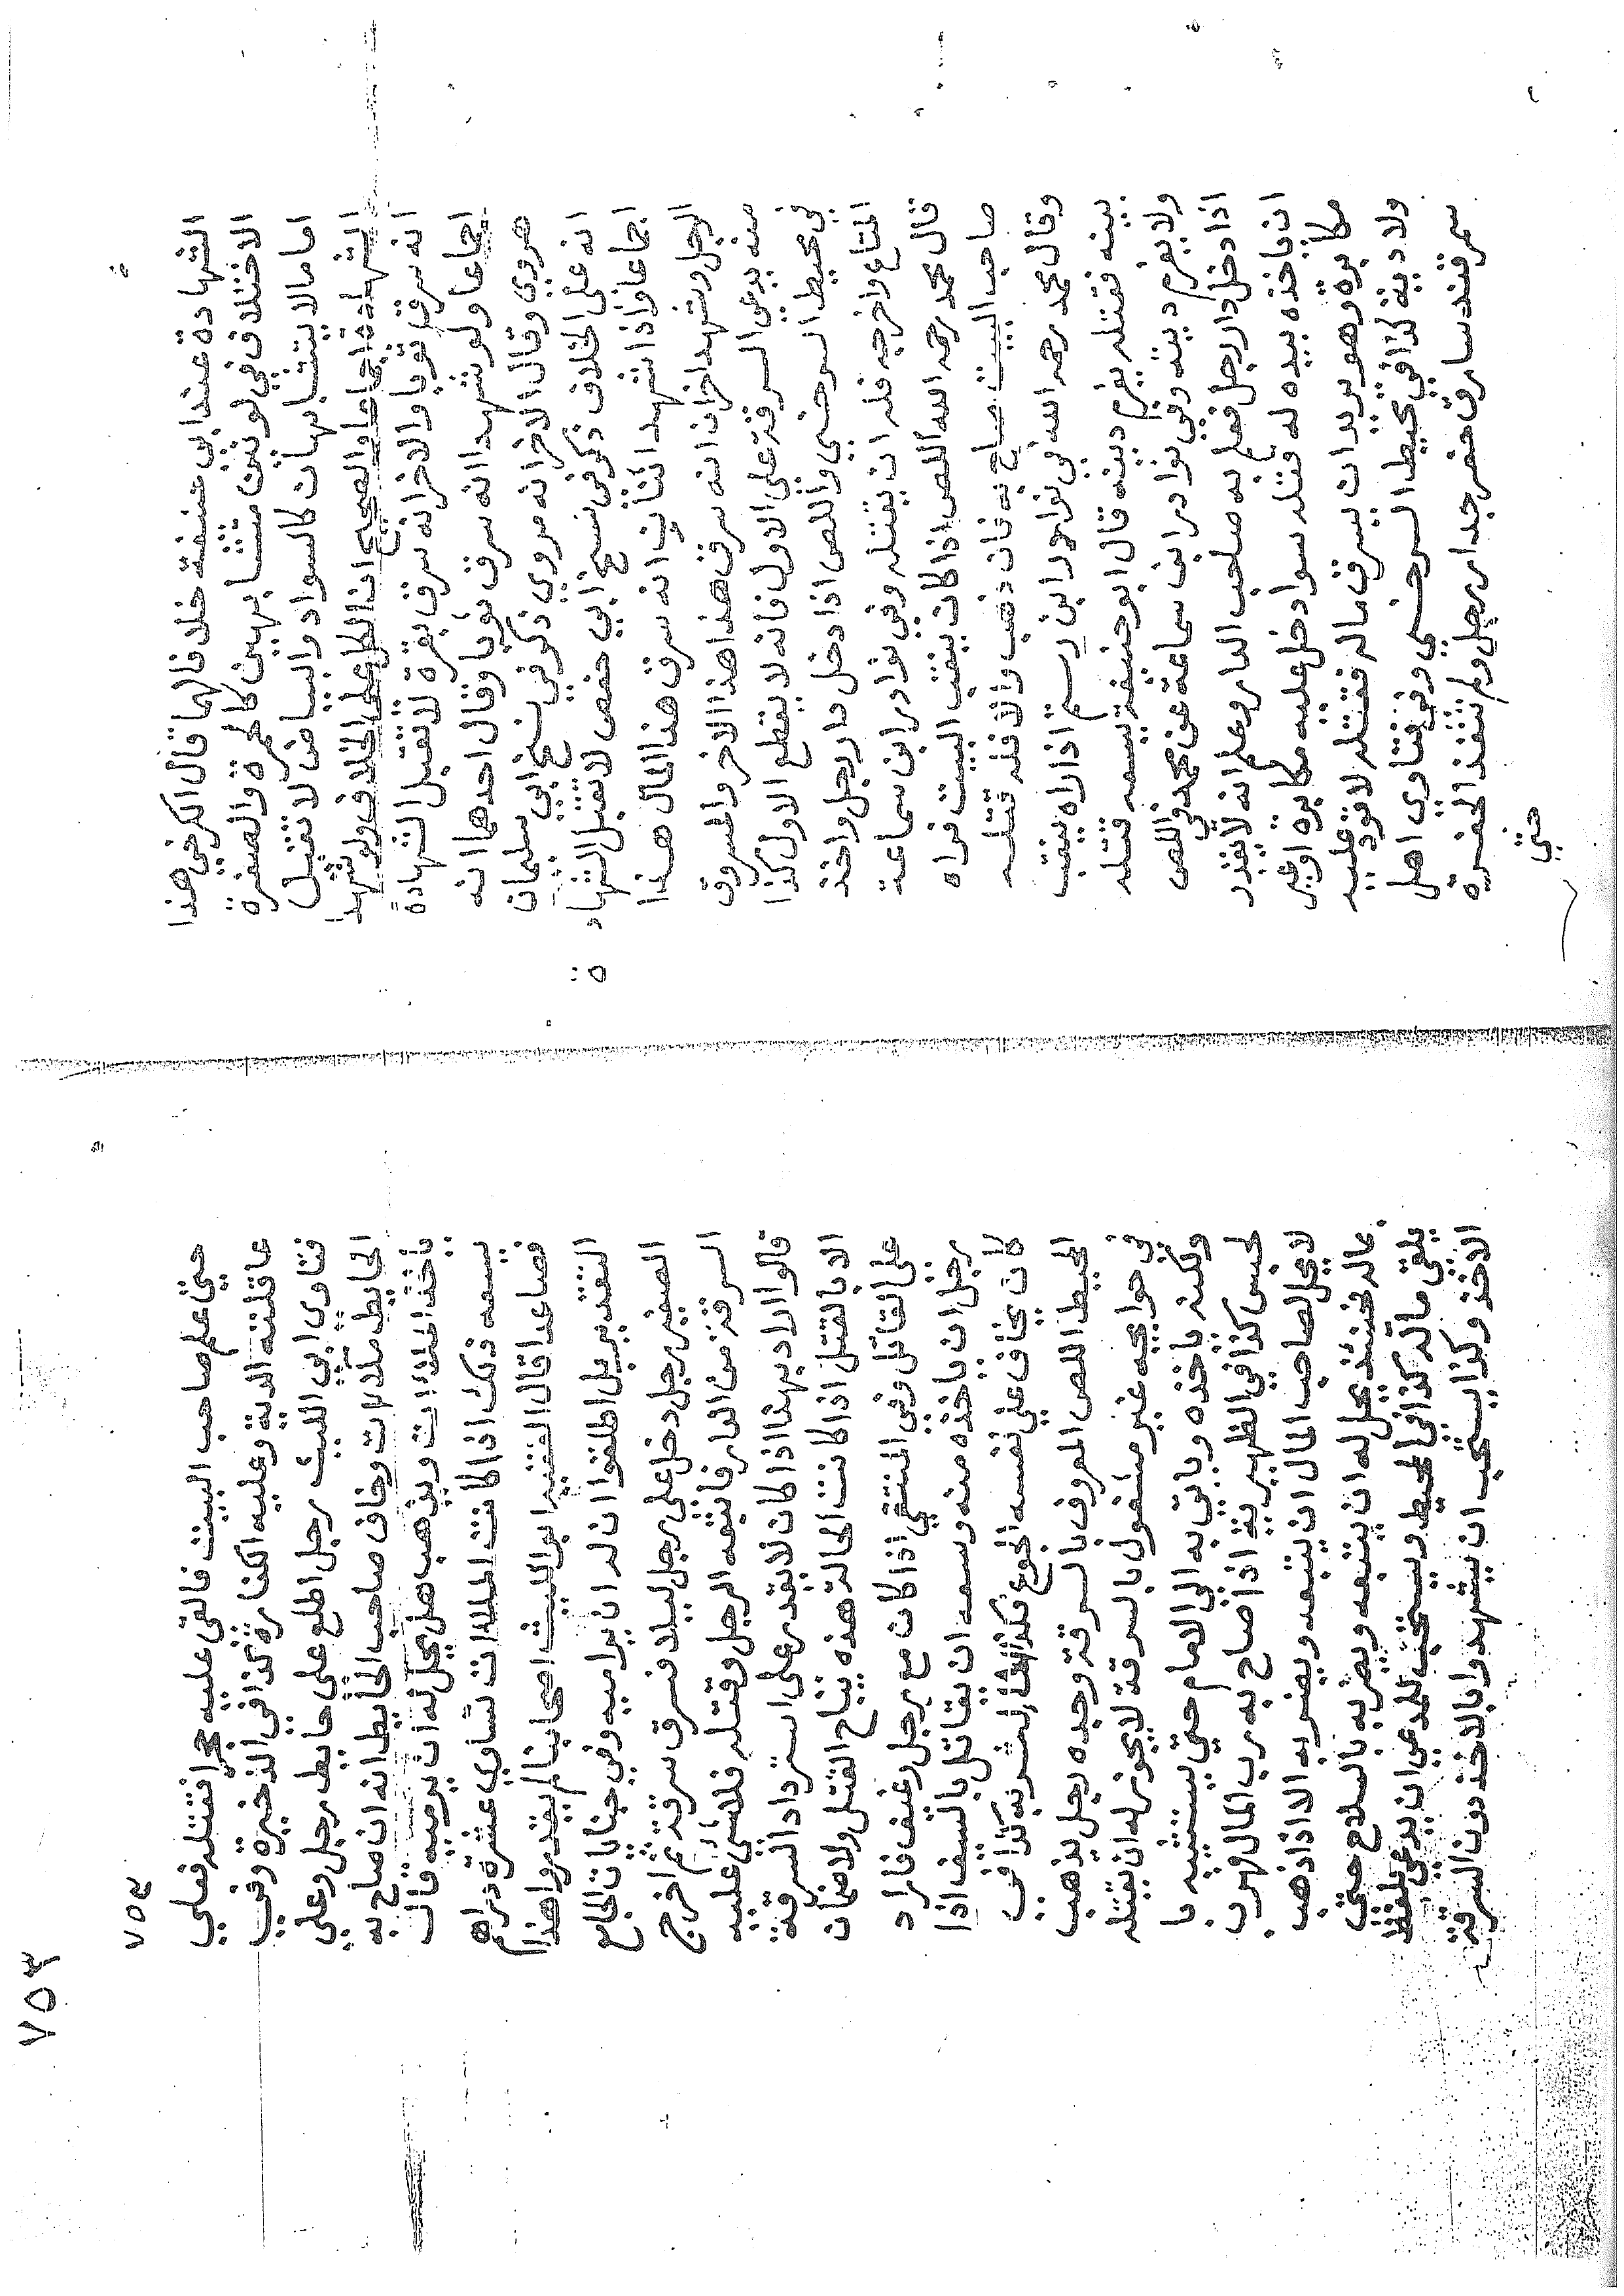 الشهادة عند ابي حنيفة خلافا لهما قال الكرخي هذا
الاختلاف في لونين متشابهين كالحمرة والصفرة
اما ما لا يتشابهان كالسواد والبياض لا تقبل
الشهادة اجماعا والصحيح ان الكل على الخلاف ولو شهد
انه سرق ثورا والاخر انه سرق بقرة لا تقبل الشهادة
اجماعا ولو شهدا انه سرق ثوبا وقال احدهما انه
هروي وقال الاخر انه مروي ذكر في نسخ ابي سليمان
انه على الخلاف ذكر في نسخ ابي حفص لا تقبل الشهاد
اجماعا واذا شهد اثنان انه سرق هذا المال هذا
الرجل وشهد اخران انه سرق هذا هذا الاخر والمسروق
منه يدعي السرقة على الاول فانه لا يقطع الاول كذا
في محيط السرخسي واللص اذا دخل دار رجل واخذ
المتاع واخرجه فله ان يقتله وفي نوادر ابن سماعة
قال محمد رحمه الله اللص اذا كان ينقب البيت فراه
صاحب البيت صاح به فان ذهب والا فله قتله
وقال محمد رحمه الله في نوادر ابن رستم اذا راه ينقب
بيته فقتله يغرم ديته قال ابو حنيفة يسعه قتله
ولا يغرم ديته وفي نوادر ابن سماعة عن محمد في اللص
اذا دخل دار رجل فعلم به صاحب الدار وعلم انه لا يقدر
ان ياخذه بيده له قتله سوا دخل عليه مكابرة او غير
مكابرة وهو يريد ان يسرق ماله فقتله لا قود عليه
ولا دية كذا في محيط السرخسي وفي فتاوى اهل
سمرقند سارق حفر جدار رجل ولم تنفذ الحفرة
حتي
٧٥٣
٧٥٣
حتي علم صاحب البيت فالقى عليه حجرا فقتله فعلي
عاقلته الدية وعليه الكفارة كذا في الذخيرة وفي
فتاوى ابي الليث رجل اطلع على حايط رجل وعلي
الحايط ملاءات وخاف صاحب الحايط انه ان صاح به
ياخذ الملاءات ويذهب هل يحل له ان يرميه قال
يسعه ذلك اذا كانت الملاءات تساوي عشرة دراهم
فصاعدا قال الفقيه ابو الليث اصحابنا لم يقدروا هذا
التقدير بل اطلقوا ان له ان يراميه وفي جنايات الجامع
الصغير رجل دخل على رجل ليلا فسرق سرقة ثم اخرج
السرقة من الدار فاتبعه الرجل وقتله فلا شي عليه
قالوا اراد بهذا اذا كان لا يقدر على استرداد السرقة
الا بالقتل اذا كانت الحالة هذه يباح القتل ولا ضمان
على القاتل وفي المنتقي اذا كان مع رجل رغيف فاراد
رجل ان ياخذه منه وسعه ان يقاتل بالسيف اذا
كان يخاف على نفسه الجوع وكذا الماء لشربه كذا في
المحيط اللص المعروف بالسرقة وجده رجل يذهب
في حوايجه غير مشغول بالسرقة لا يجوز له ان يقتله
ولكنه ياخذه وياتي به الى الامام حتي يستتيبه با
لحبس كذا في الظهيرية اذا صاح به رب المال فهرب
لا يحل لصاحب المال ان يتبعه ويضربه الا اذا ذهب
بماله فحينئذ يحل له ان يتبعه ويضربه بالسلاح حتى
يلقى ماله كذا في المحيط ويستحب للمدعي ان يدعي بلفظ
الاخذ وكذا يستحب ان يشهدوا بالاخذ دون السرقة